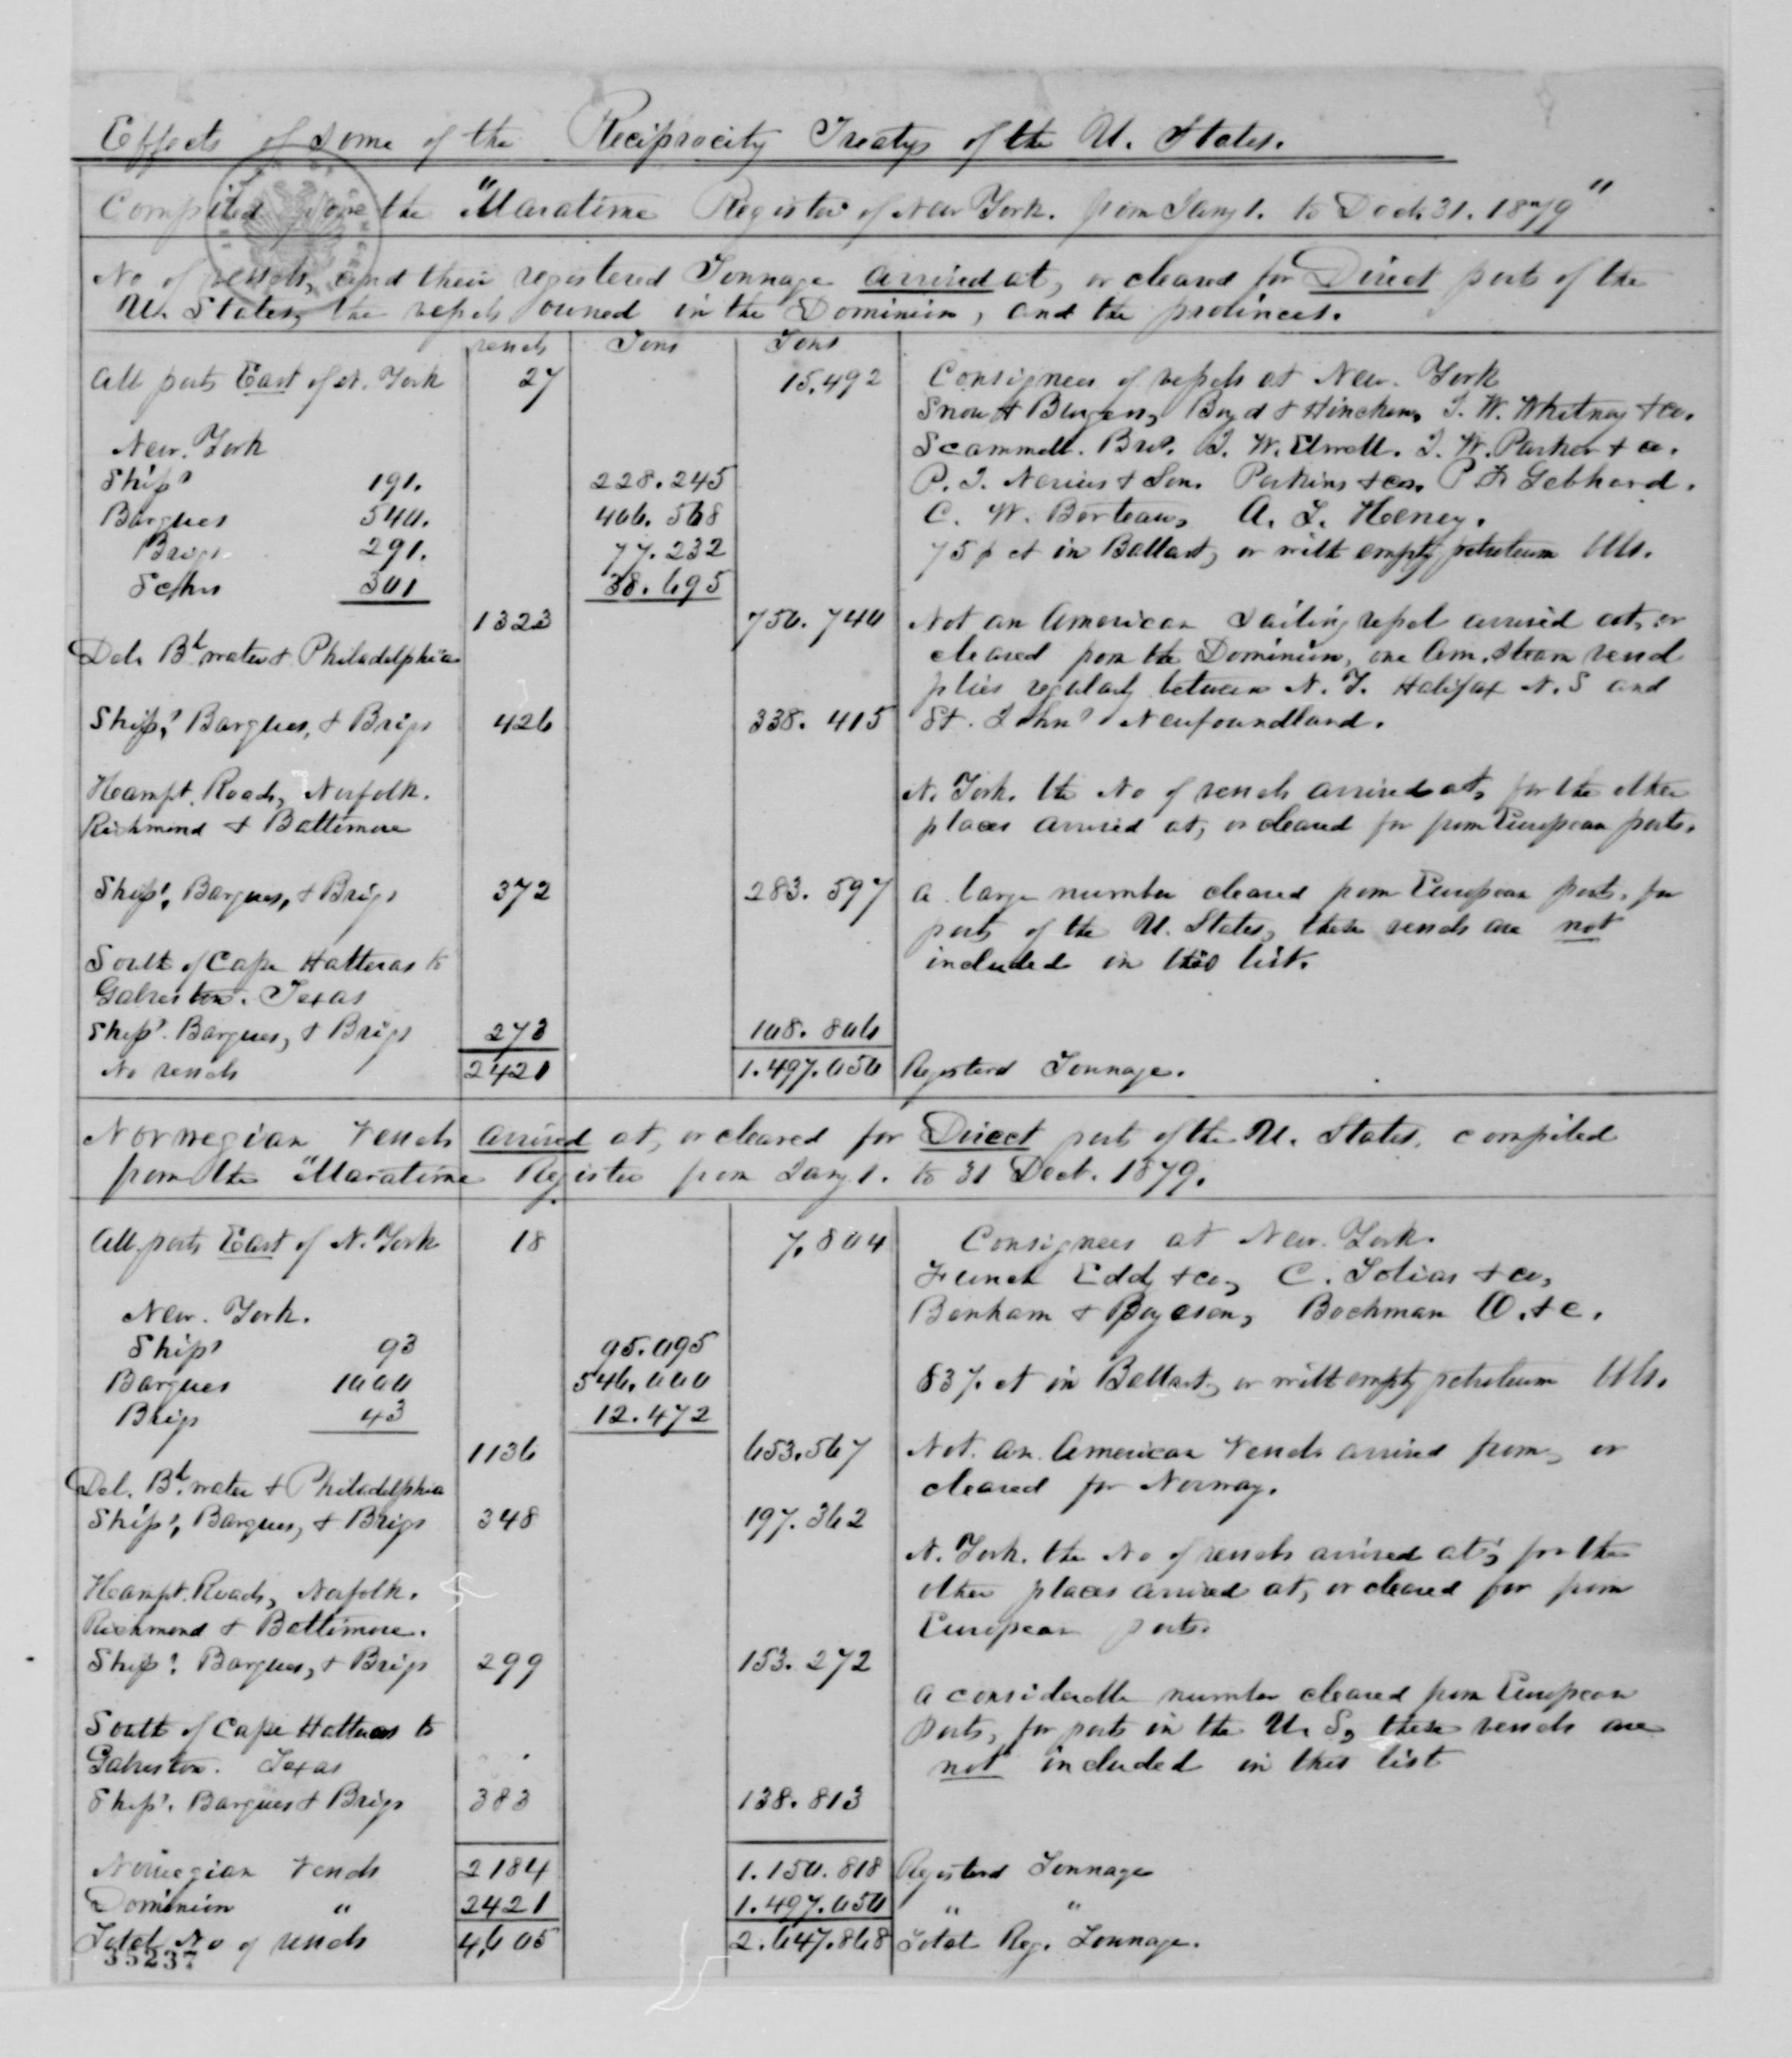 Effects of Some of the Reciprocity Treatys of the U. States.
Compiled from the "Maratime Register of New York. from Jany 1. to Dect. 31. 1879"
No of vessels, and their registered Tonnage arrived at, or cleared for Direct ports of the
U. States, the vessels owned in the Dominion, and the provinces.
vessels Tons Tons
All ports East of N. York 27 15.492 Consignees of vessels at New. York
Snow & Burgess, Boyd & Hincken, J. W. Whitney & co.
New. York Scammell. Bros. J. W. Elwell. J. W. Parker & co.
Ships 191. 228.245 P. I. Nevius & Son. Perkins & co. P. F. Gebhard.
Barques 540. 406.568 C. W. Berteaux, A. L. Heeney.
Brigs 291. 77.232 75 p ct in Ballast, or with empty petroleum bbls.
Schrs 301 38.695
1323 750.740 Not an American Sailing vessel arrived at, or
Del. Bk. water & Philadelphia cleared from the Dominion, one Am. Steam vessel
plies regularly between N. Y. Halifax N. S and
Ships, Barques, & Brigs 426 338.415 St. Johns Newfoundland.
Hampt. Roads, Norfolk. N. York. the No of vessels arrived at, for the other
Richmond & Baltimore places arrived at, or cleared for from European ports.
Ships, Barques, & Brigs 372 283.597 A large number cleared from European ports, for
ports of the U. States, these vessels are not
South of Cape Hatteras to included in this list.
Galveston. Texas
Ships. Barques, & Brigs 273 108.806
No vessels 2421 1.497.050 Registerd Tonnage.
Norwegian Vessels arrived at, or cleared for Direct ports of the U. States, compiled
from the "Maratime Register from Jany 1. to 31 Dect. 1879.
All ports East of N. York 18 7.804 Consignees at New. York.
Funch Edd, & co, C. Tobias & co,
New. York. Benham & Boyesen, Bockman O. & c.
Ships 93 95.095
Barques 1000 546.000 83 p. ct in Ballast, or with empty petroleum bbls.
Brigs 43 12.472
1136 653.567 Not. an. American Vessels arrived from, or
Del. Bk. water & Philadelphia cleared for Norway.
Ships, Barques, & Brigs 348 197.362
N. York. the No of vessels arrived at, for the
Hampt. Roads, Norfolk. other places arrived at, or cleared for from
Richmond & Baltimore. European ports.
Ships, Barques, & Brigs 299 153.272
A considerable number cleared from European
South of Cape Hatteras to ports, for ports in the U. S, these vessels are
Galveston. Texas not included in this list
Ships. Barques & Brigs 383 138.813
Norwegian Vessels 2184 1.150.818 Registerd Tonnage
Dominion " 2421 1.497.050 " "
Total No of vessels 4,605 2.647.868 Total Reg. Tonnage.
35237